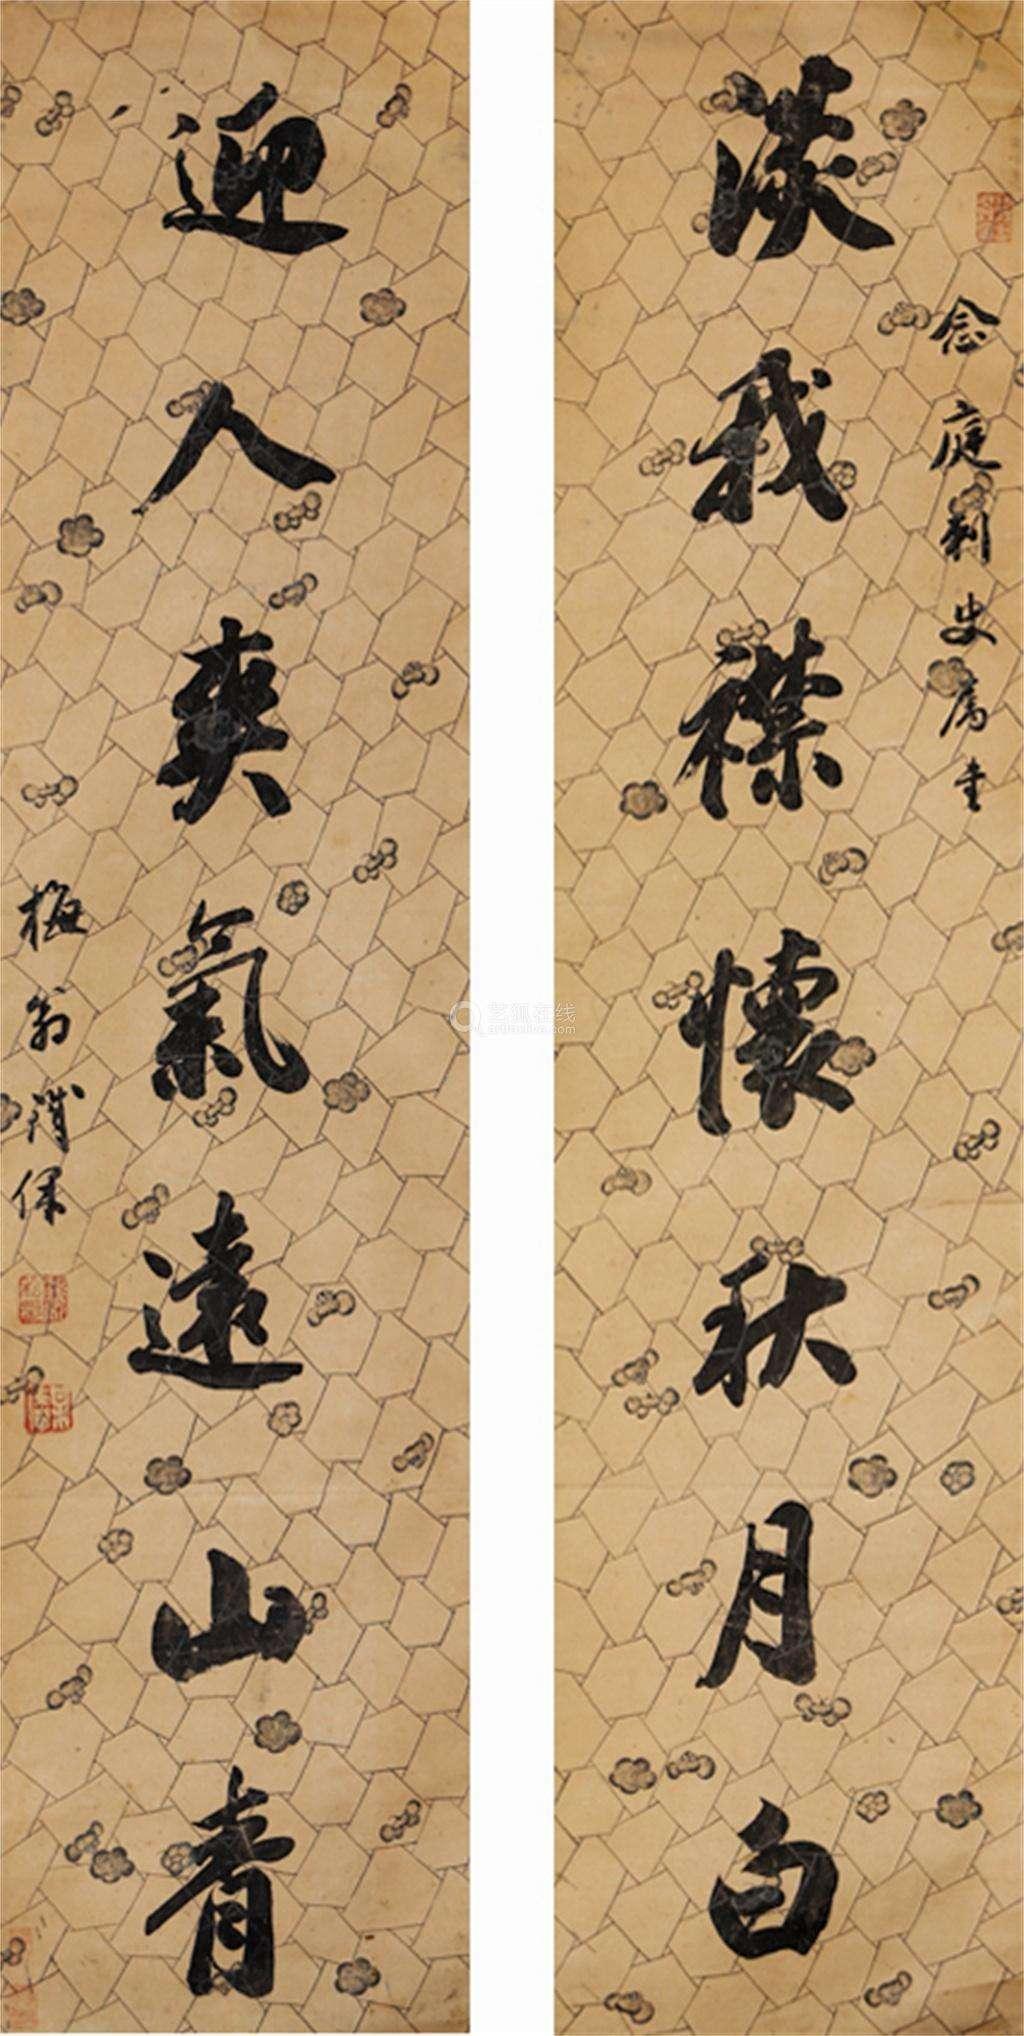 淡我襟懷秋月白
念庭刺史屬書
迎人爽氣遠山青
梅翁鐵保
艺狐在线
artfoxlive.com